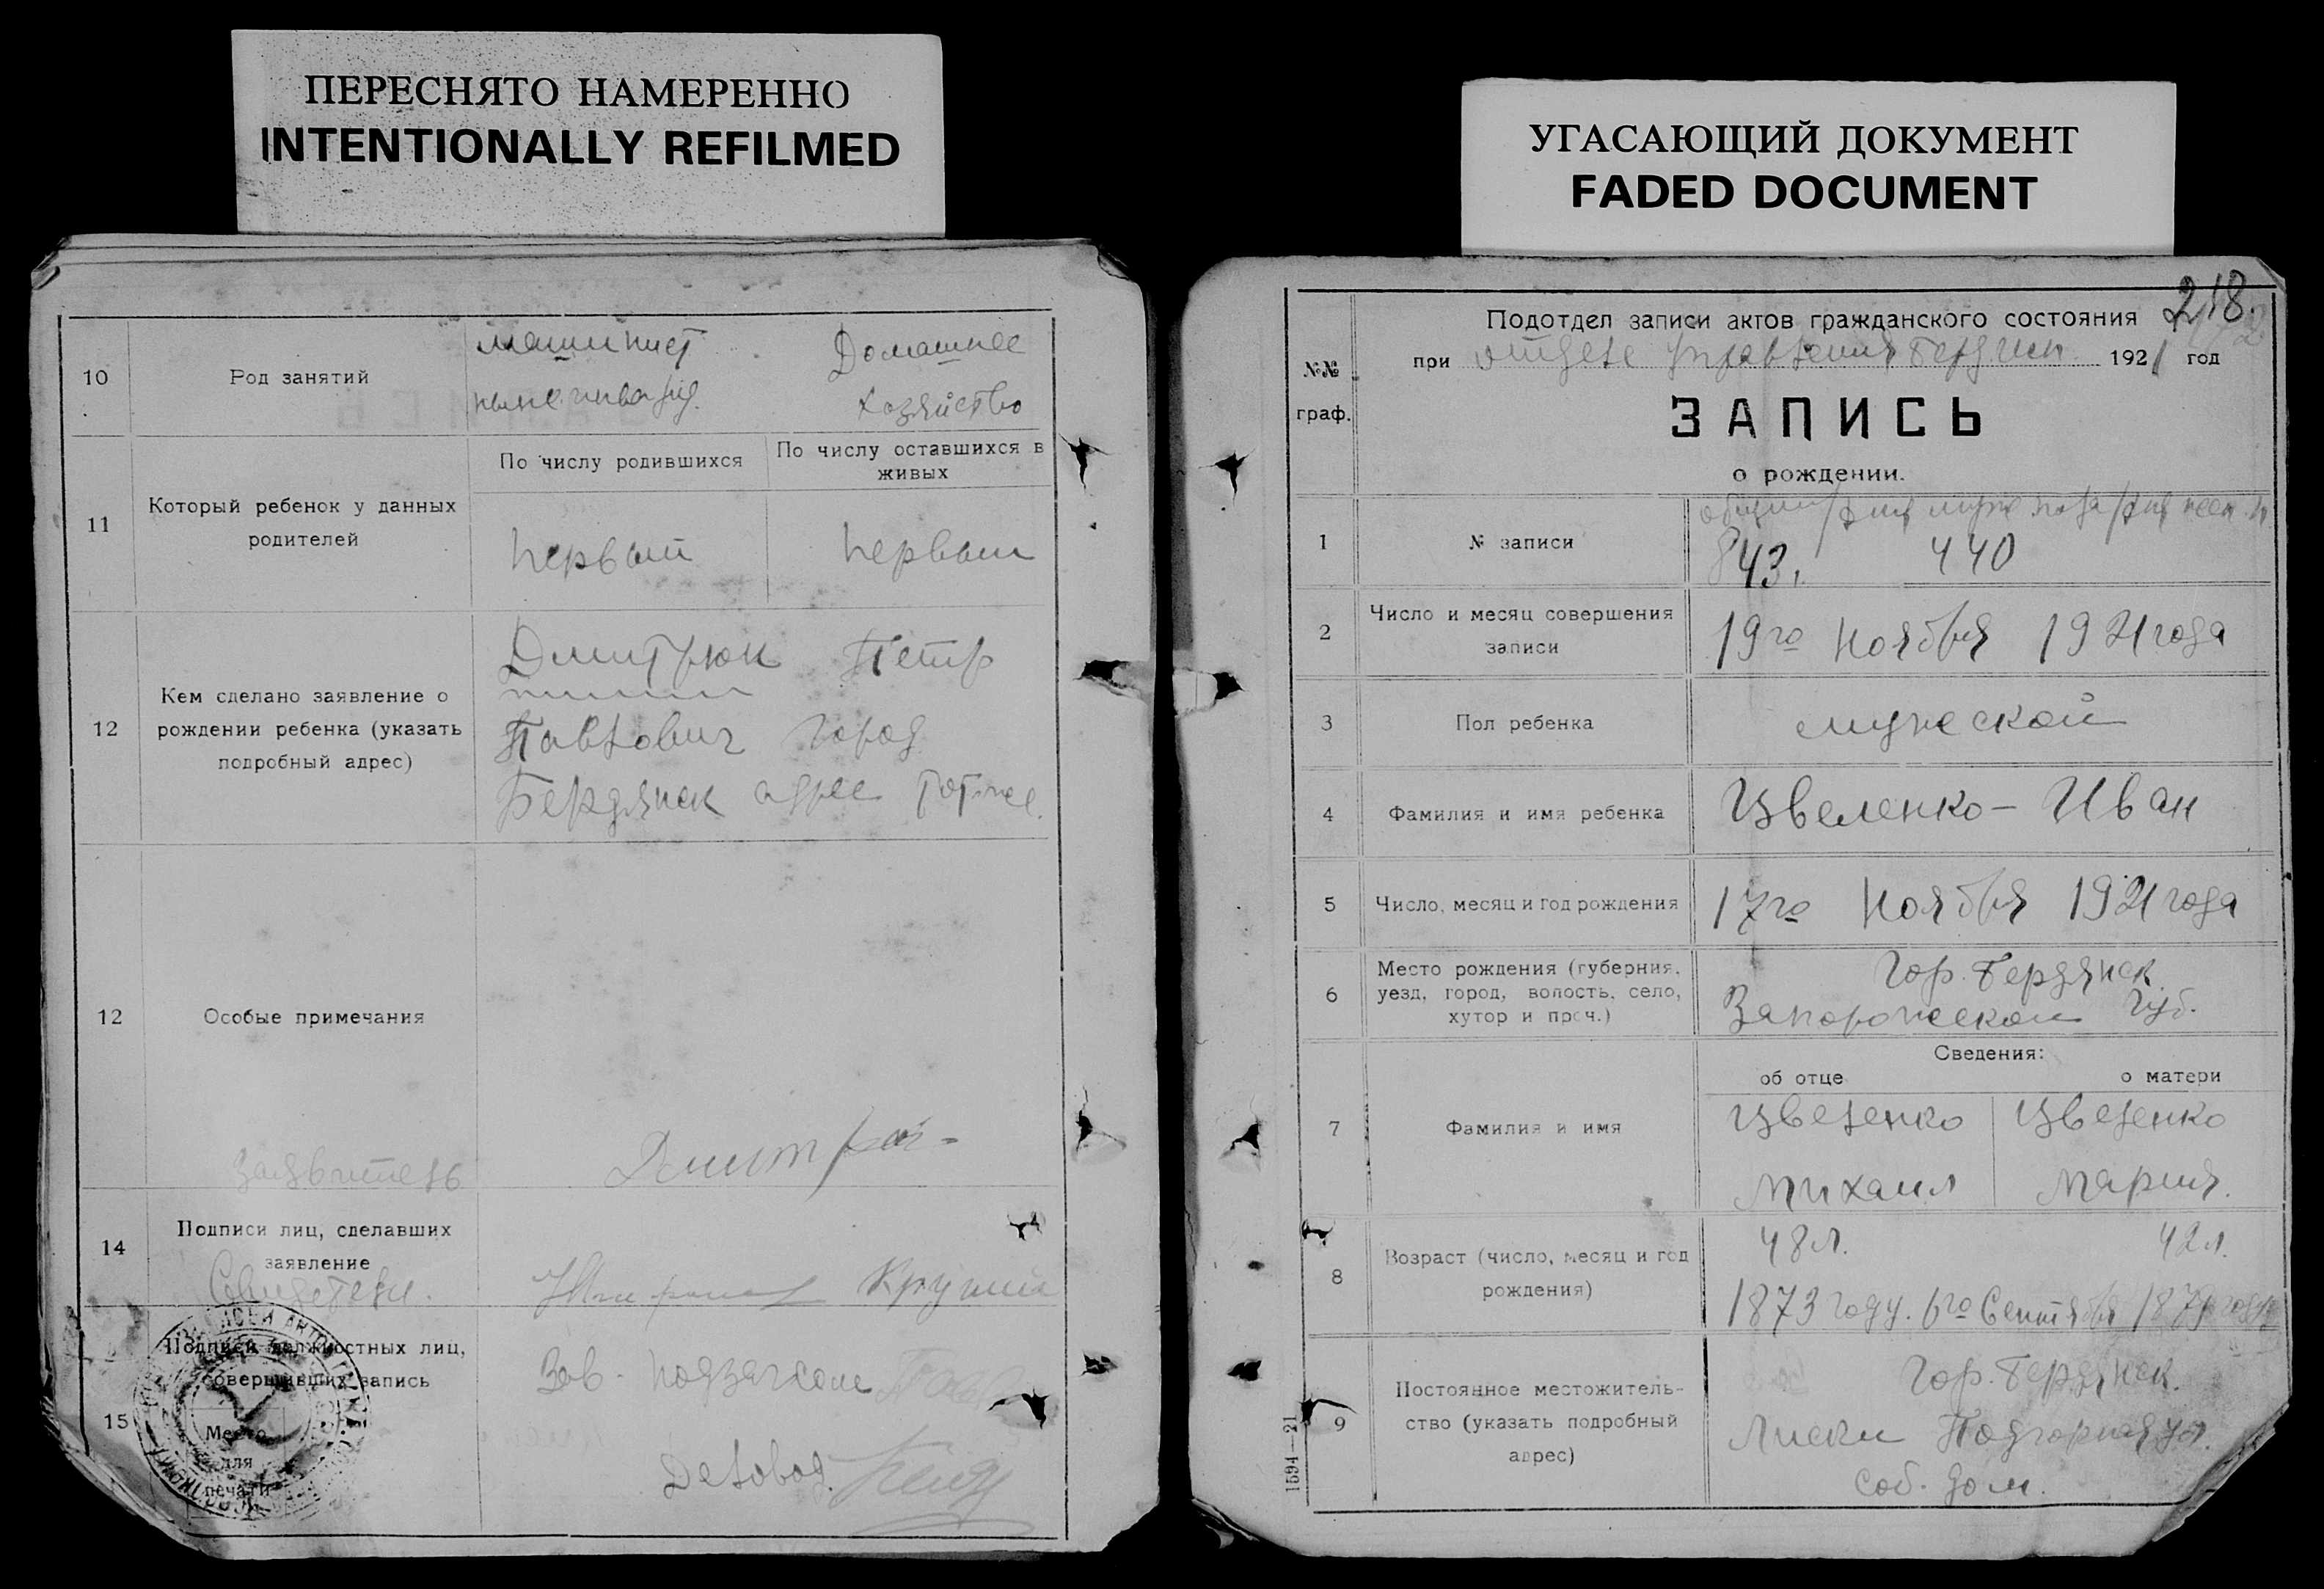 ПЕРЕСНЯТО НАМЕРЕННО
INTENTIONALLY REFILMED
10
Род занятий
машинист
ныне инвалид.
Домашнее
хозяйство
11
Который ребенок у данных
родителей
По числу родившихся
По числу оставшихся в
живых
первый
первый
12
Кем сделано заявление о
рождении ребенка (указать
подробный адрес)
Дмитрюк Петр
Павлович город
Бердянск адрес
12
Особые примечания
Заявитель
14
Подписи лиц, сделавших
заявление
Свидетели.
15
Подписи должностных лиц,
совершивших запись
Место
для
печати
Зав. подзагсом
Деловод.
УГАСАЮЩИЙ ДОКУМЕНТ
FADED DOCUMENT
218.
№№
граф.
Подотдел записи актов гражданского состояния
при отделе управления Бердиск. 1921 год
ЗАПИСЬ
о рождении.
1
№ записи
843. 440
2
Число и месяц совершения
записи
19го Ноября 1921 года
3
Пол ребенка
мужской
4
Фамилия и имя ребенка
Цвеленко - Иван
5
Число, месяц и год рождения
17го Ноября 1921 года
6
Место рождения (губерния,
уезд, город, волость, село,
хутор и проч.)
Гор. Бердянск
Запорожской Губ.
Сведения:
об отце
о матери
7
Фамилия и имя
Цвеленко
Михаил
Цвеленко
Мария.
8
Возраст (число, месяц и год
рождения)
48 л.
42 л.
1873 году. 6го Сентября 1879 года
9
Постоянное местожитель-
ство (указать подробный
адрес)
Гор. Бердянск.
Лиски Подгорная ул.
соб. дом.
1594—21